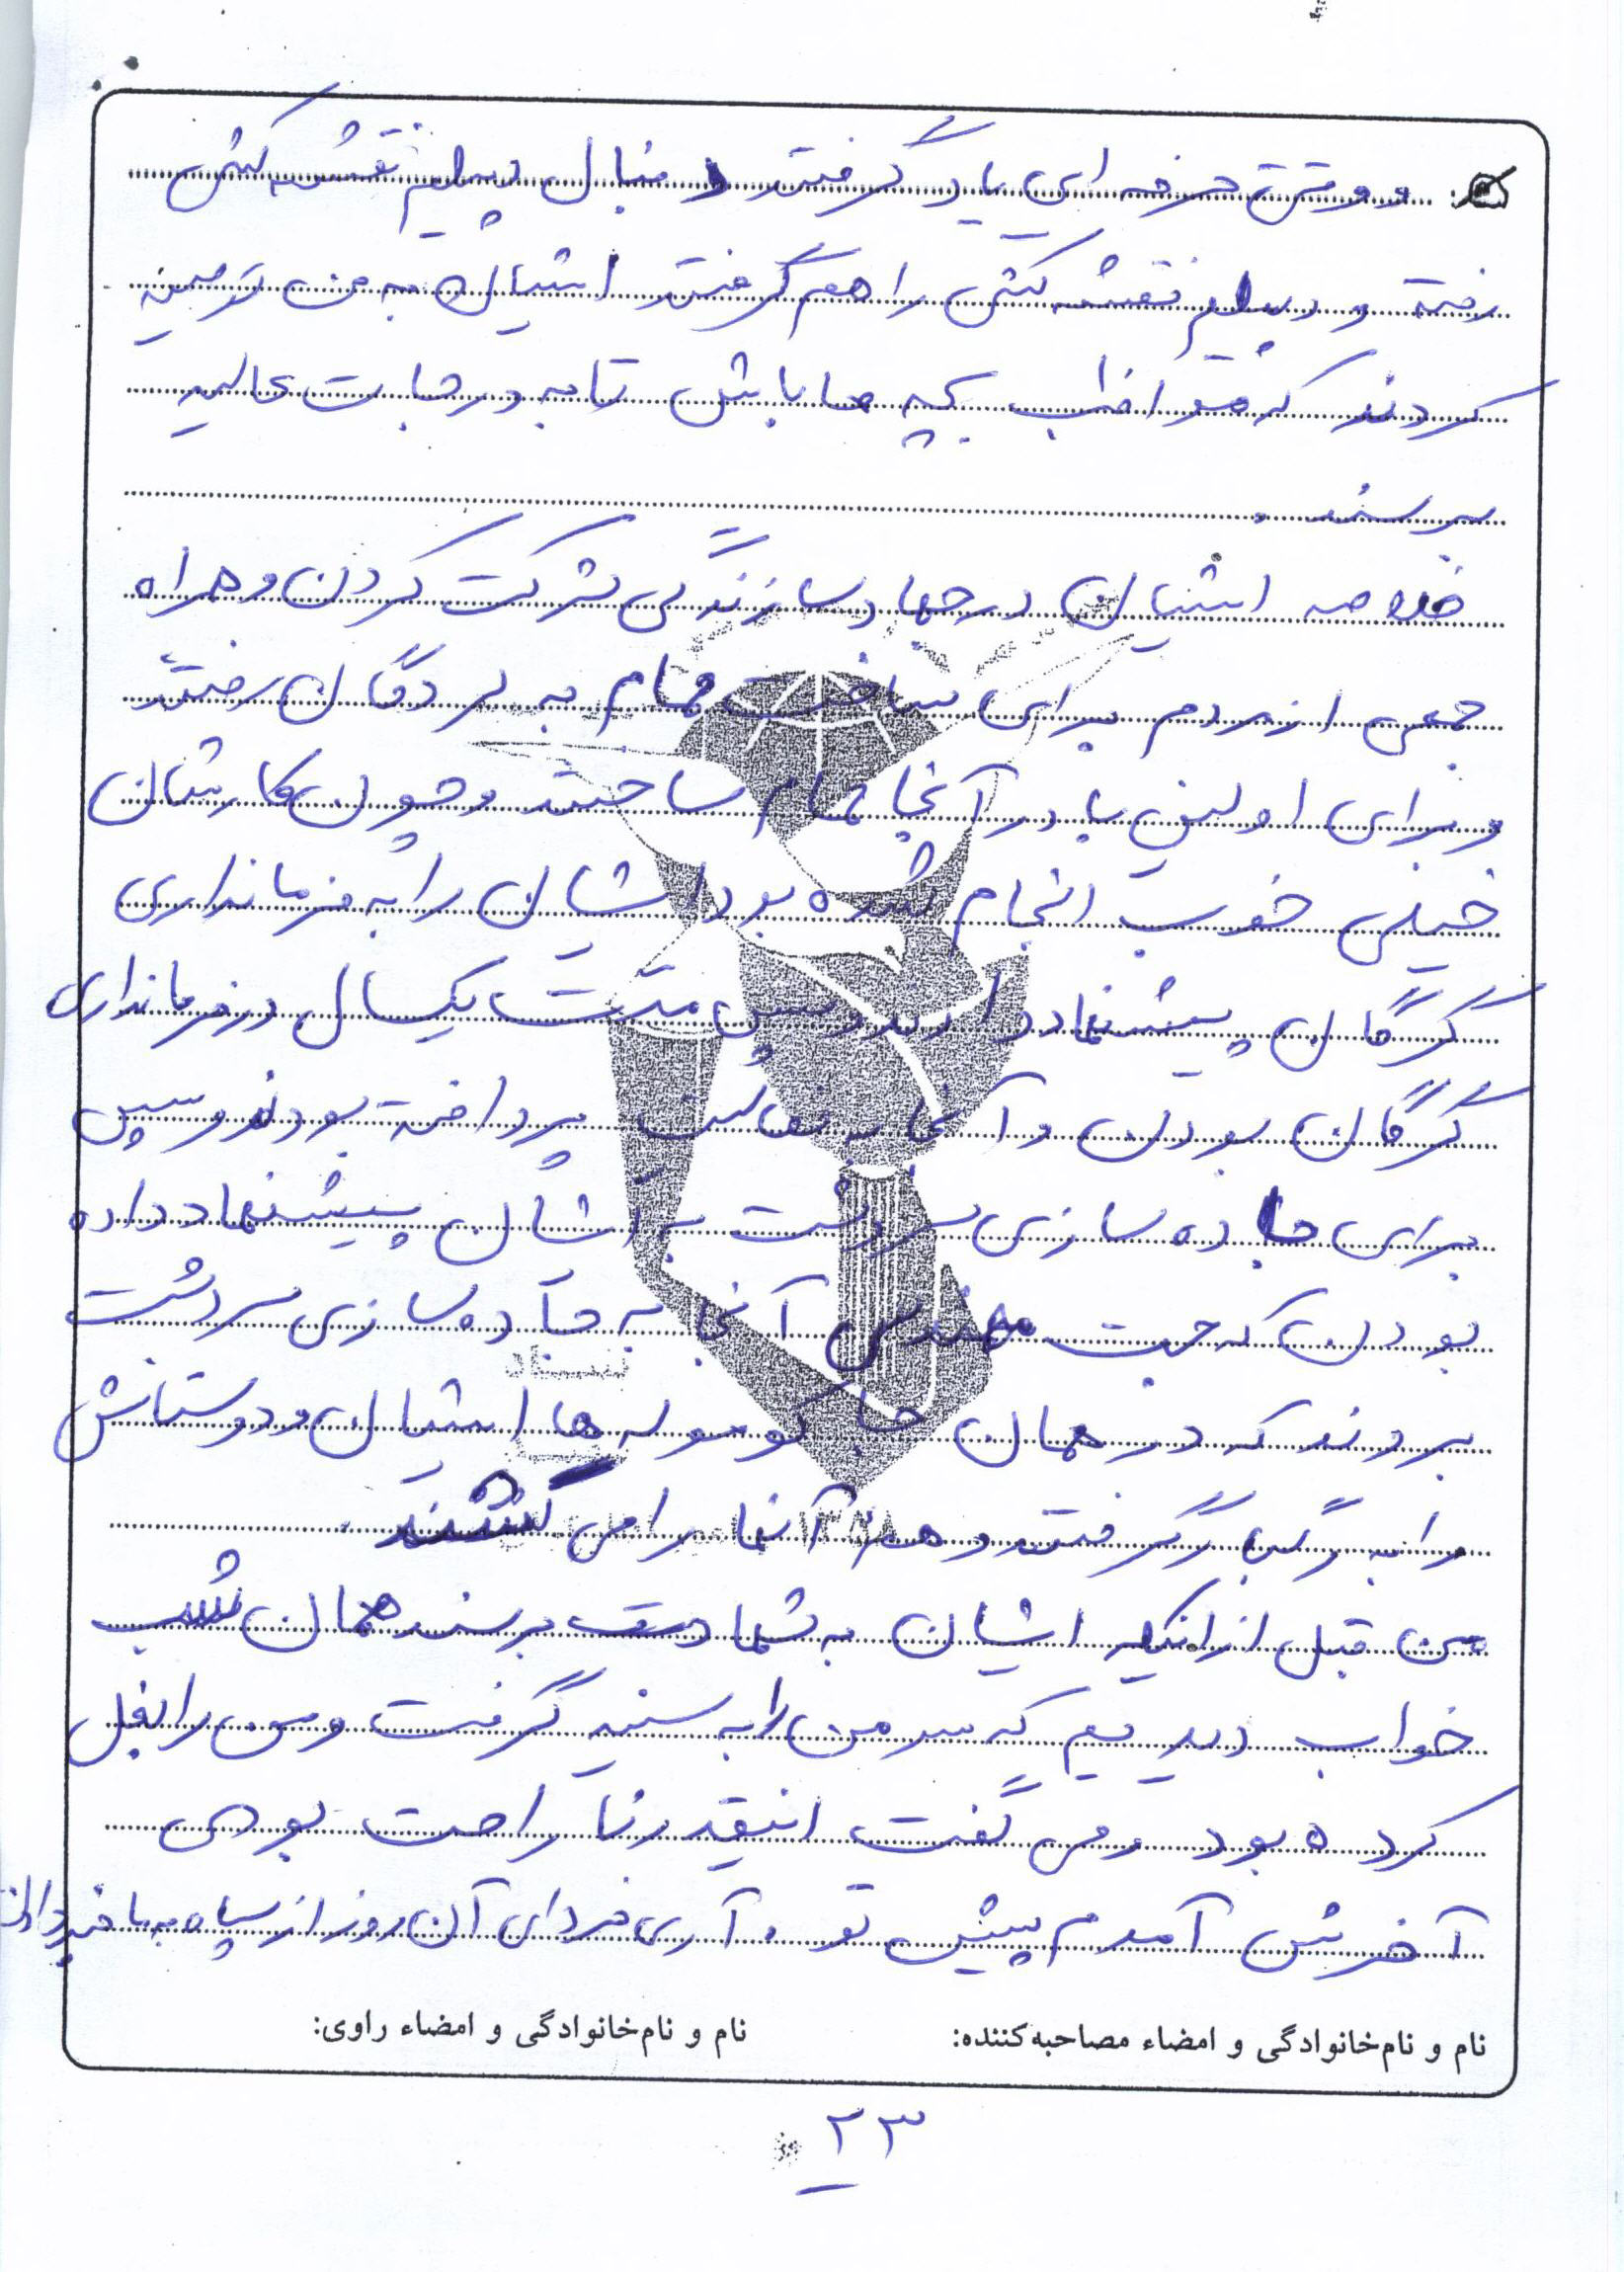 ووقتی حرفه ای یاد گرفتند دنبال دیپلم نقشه کشی
رفته و دیپلم نقشه کشی را هم گرفتند ایشان به من توصیه
کردند که مواظب بچه ها باش تا به درجات عالیه
برسند.
خلاصه ایشان در جهاد سازندگی شرکت کردن و همراه
جمعی از مردم برای ساخت حمام به لردگان رفتند
و برای اولین با در آنجا حمام ساختند و چون کارشان
خیلی خوب انجام شده بود ایشان را به فرمانداری
گرگان پیشنهاد دادند و سپس مدت یکسال در فرمانداری
گرگان بودن و آنجا به فعالیت پرداخته بودند و سپس
برای جاده سازی سردشت به ایشان پیشنهاد داده
بودن که جهت مهندسی آنجا به جاده سازی سردشت
بردند که در همان جا کوموله ها ایشان و دوستانش
را به رگبار گرفتند و همه آنها را می کشند.
من قبل از اینکه ایشان به شهادت برسند همان شب
خواب دیدیم که سر من را به سینه گرفت و من را بغل
کرده بود و می گفت اینقدر نا راحت بودی
آخرش آمدم پیش تو. آری فردای آن روز از سپاه به ما خبر دادند
نام و نام خانوادگی و امضاء مصاحبه کننده: نام و نام خانوادگی و امضاء راوی:
۲۳